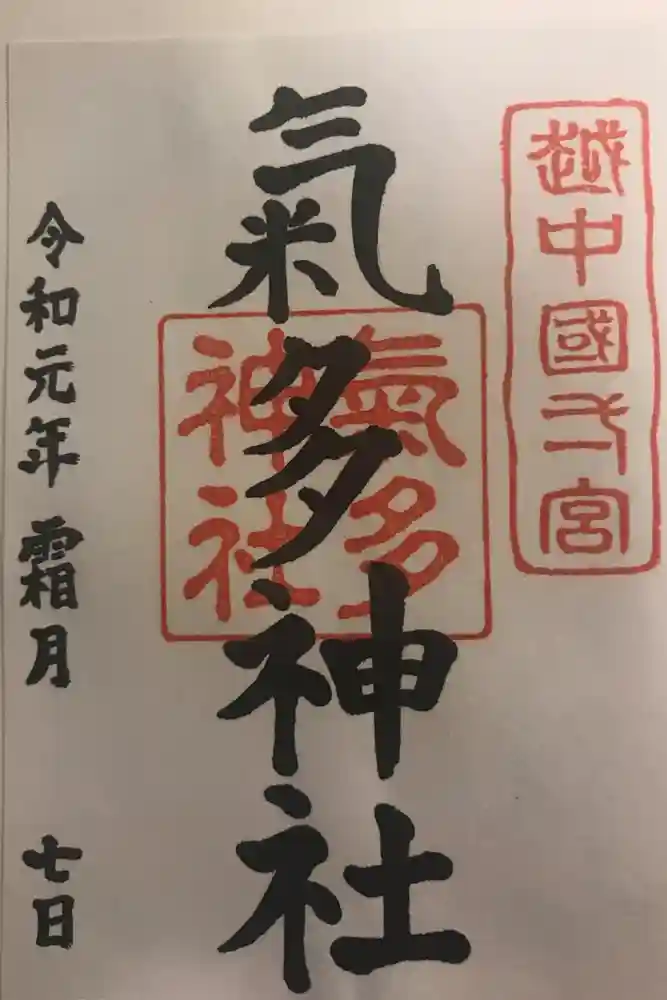 越中國弌宮
氣多神社
氣多
神社
令和元年 霜月 七日